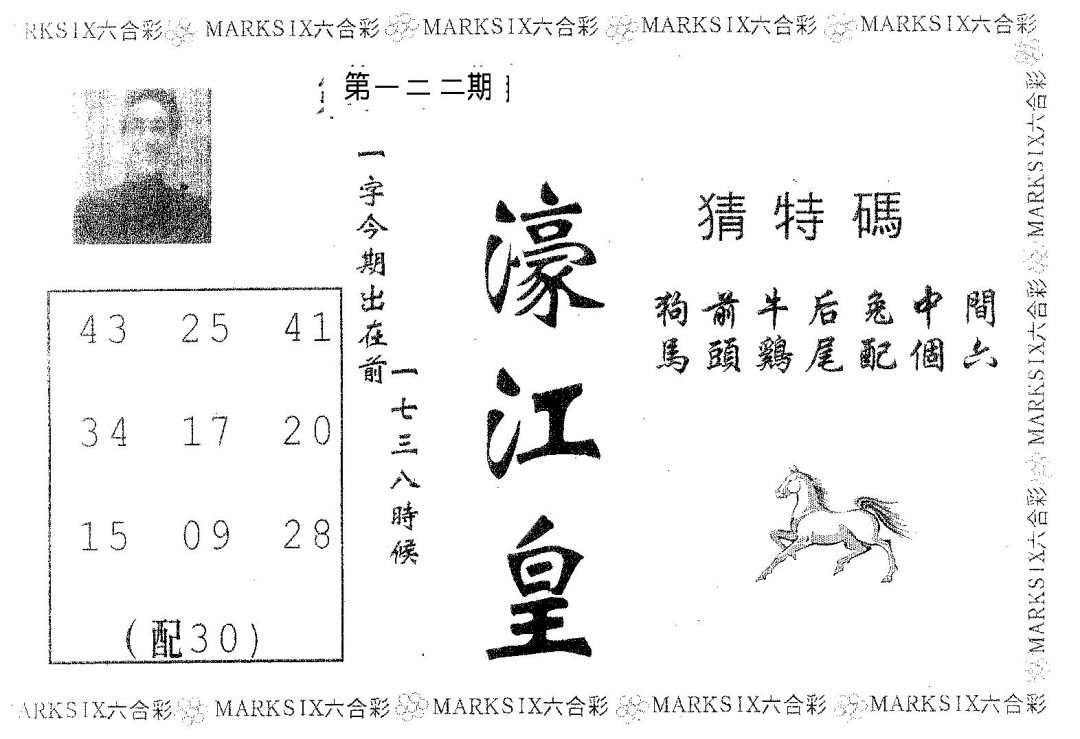 RKSIX六合彩 MARKSIX六合彩 MARKSIX六合彩 MARKSIX六合彩 MARKSIX六合彩
第一二二期
一字今期出在前
一七三八時候
濠江皇
猜特碼
狗前牛后兔中間
馬頭鷄尾配個六
43 25 41
34 17 20
15 09 28
(配30)
MARKSIX六合彩 MARKSIX六合彩 MARKSIX六合彩
ARKSIX六合彩 MARKSIX六合彩 MARKSIX六合彩 MARKSIX六合彩 MARKSIX六合彩